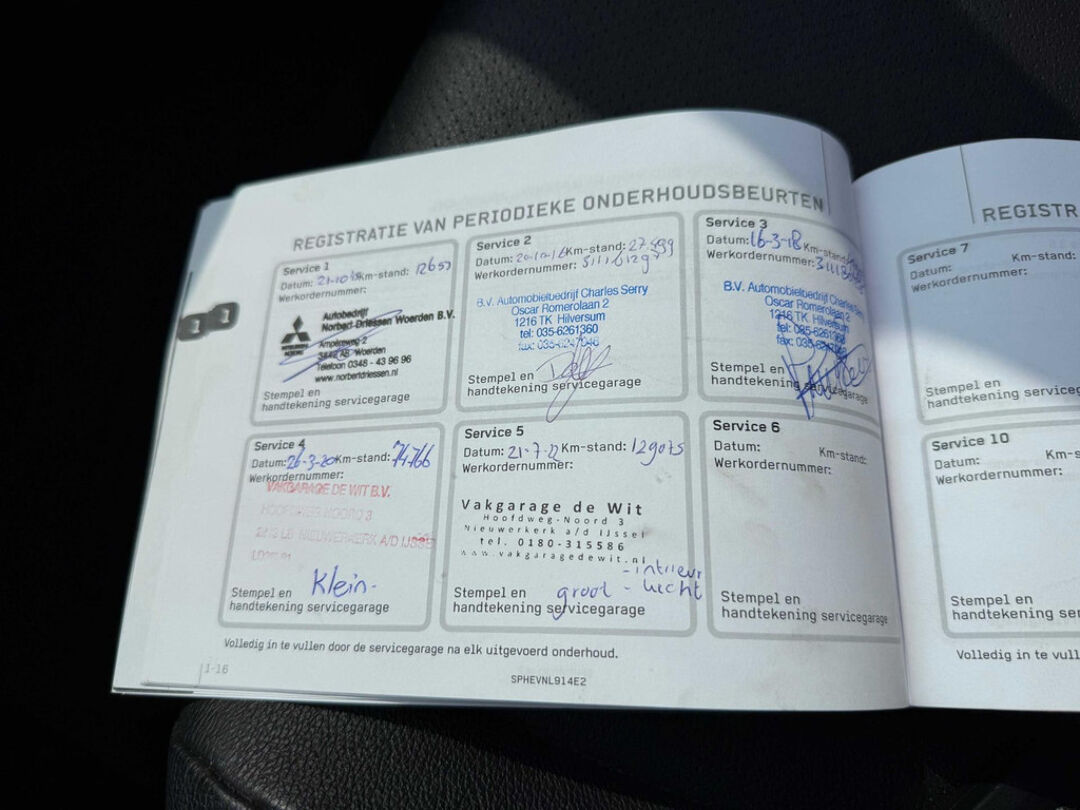 REGISTRATIE VAN PERIODIEKE ONDERHOUDSBEURTEN
Service 1
Datum: Km-stand: 12657
Werkordernummer:
Autobedrijf
Norbert Driessen Woerden B.V.
MITSUBISHI
MOTORS
Ampèreweg 2
3442 AB Woerden
Telefoon 0348 - 43 96 96
www.norbertdriessen.nl
Stempel en
handtekening servicegarage
Service 2
Datum: 20-10-16 Km-stand: 27.499
Werkordernummer:
B.V. Automobielbedrijf Charles Serry
Oscar Romerolaan 2
1216 TK Hilversum
tel: 035-6261360
fax: 035-6247046
Stempel en
handtekening servicegarage
Service 3
Datum: 16-3-18 Km-stand:
Werkordernummer:
B.V. Automobielbedrijf Charles Serry
Oscar Romerolaan 2
1216 TK Hilversum
tel: 035-6261360
fax:
Stempel en
handtekening servicegarage
Service 4
Datum: 26-3-20 Km-stand: 74.766
Werkordernummer:
VAKGARAGE DE WIT B.V.
HOOFDWEG NOORD 3
NIEUWERKERK A/D IJSSEL
Klein-
Stempel en
handtekening servicegarage
Service 5
Datum: 21-7-22 Km-stand: 129075
Werkordernummer:
Vakgarage de Wit
Hoofdweg-Noord 3
Nieuwerkerk a/d IJssel
tel. 0180-315586
www.vakgaragedewit.nl
- intrieur
groot - lucht
Stempel en
handtekening servicegarage
Service 6
Datum: Km-stand:
Werkordernummer:
Stempel en
handtekening servicegarage
Volledig in te vullen door de servicegarage na elk uitgevoerd onderhoud.
1-16
SPHEVNL914E2
1 1
REGISTR
Service 7
Datum: Km-stand:
Werkordernummer:
Stempel en
handtekening servicegarag
Service 10
Datum: Km-s
Werkordernummer:
Stempel en
handtekening servicegara
Volledig in te vull